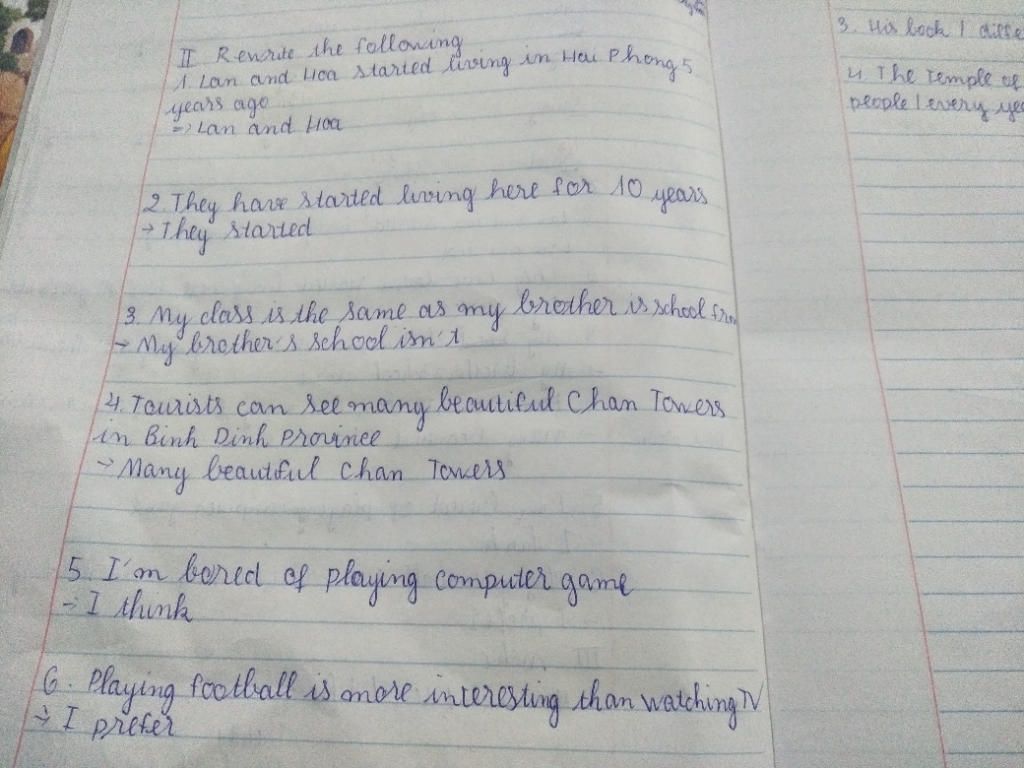 II Rewrite the following
1. Lan and Hoa started living in Hai Phong 5
years ago
=> Lan and Hoa
2. They have started living here for 10 years
→ They started
3. My class is the same as my brother is school
→ My brother's school isn't
4. Tourists can see many beautiful Chan Towers
in Binh Dinh Province
→ Many beautiful Chan Towers
5. I'm bored of playing computer game
→ I think
6. Playing football is more interesting than watching TV
→ I prefer
3. His book /
4. The Temple of
people / every